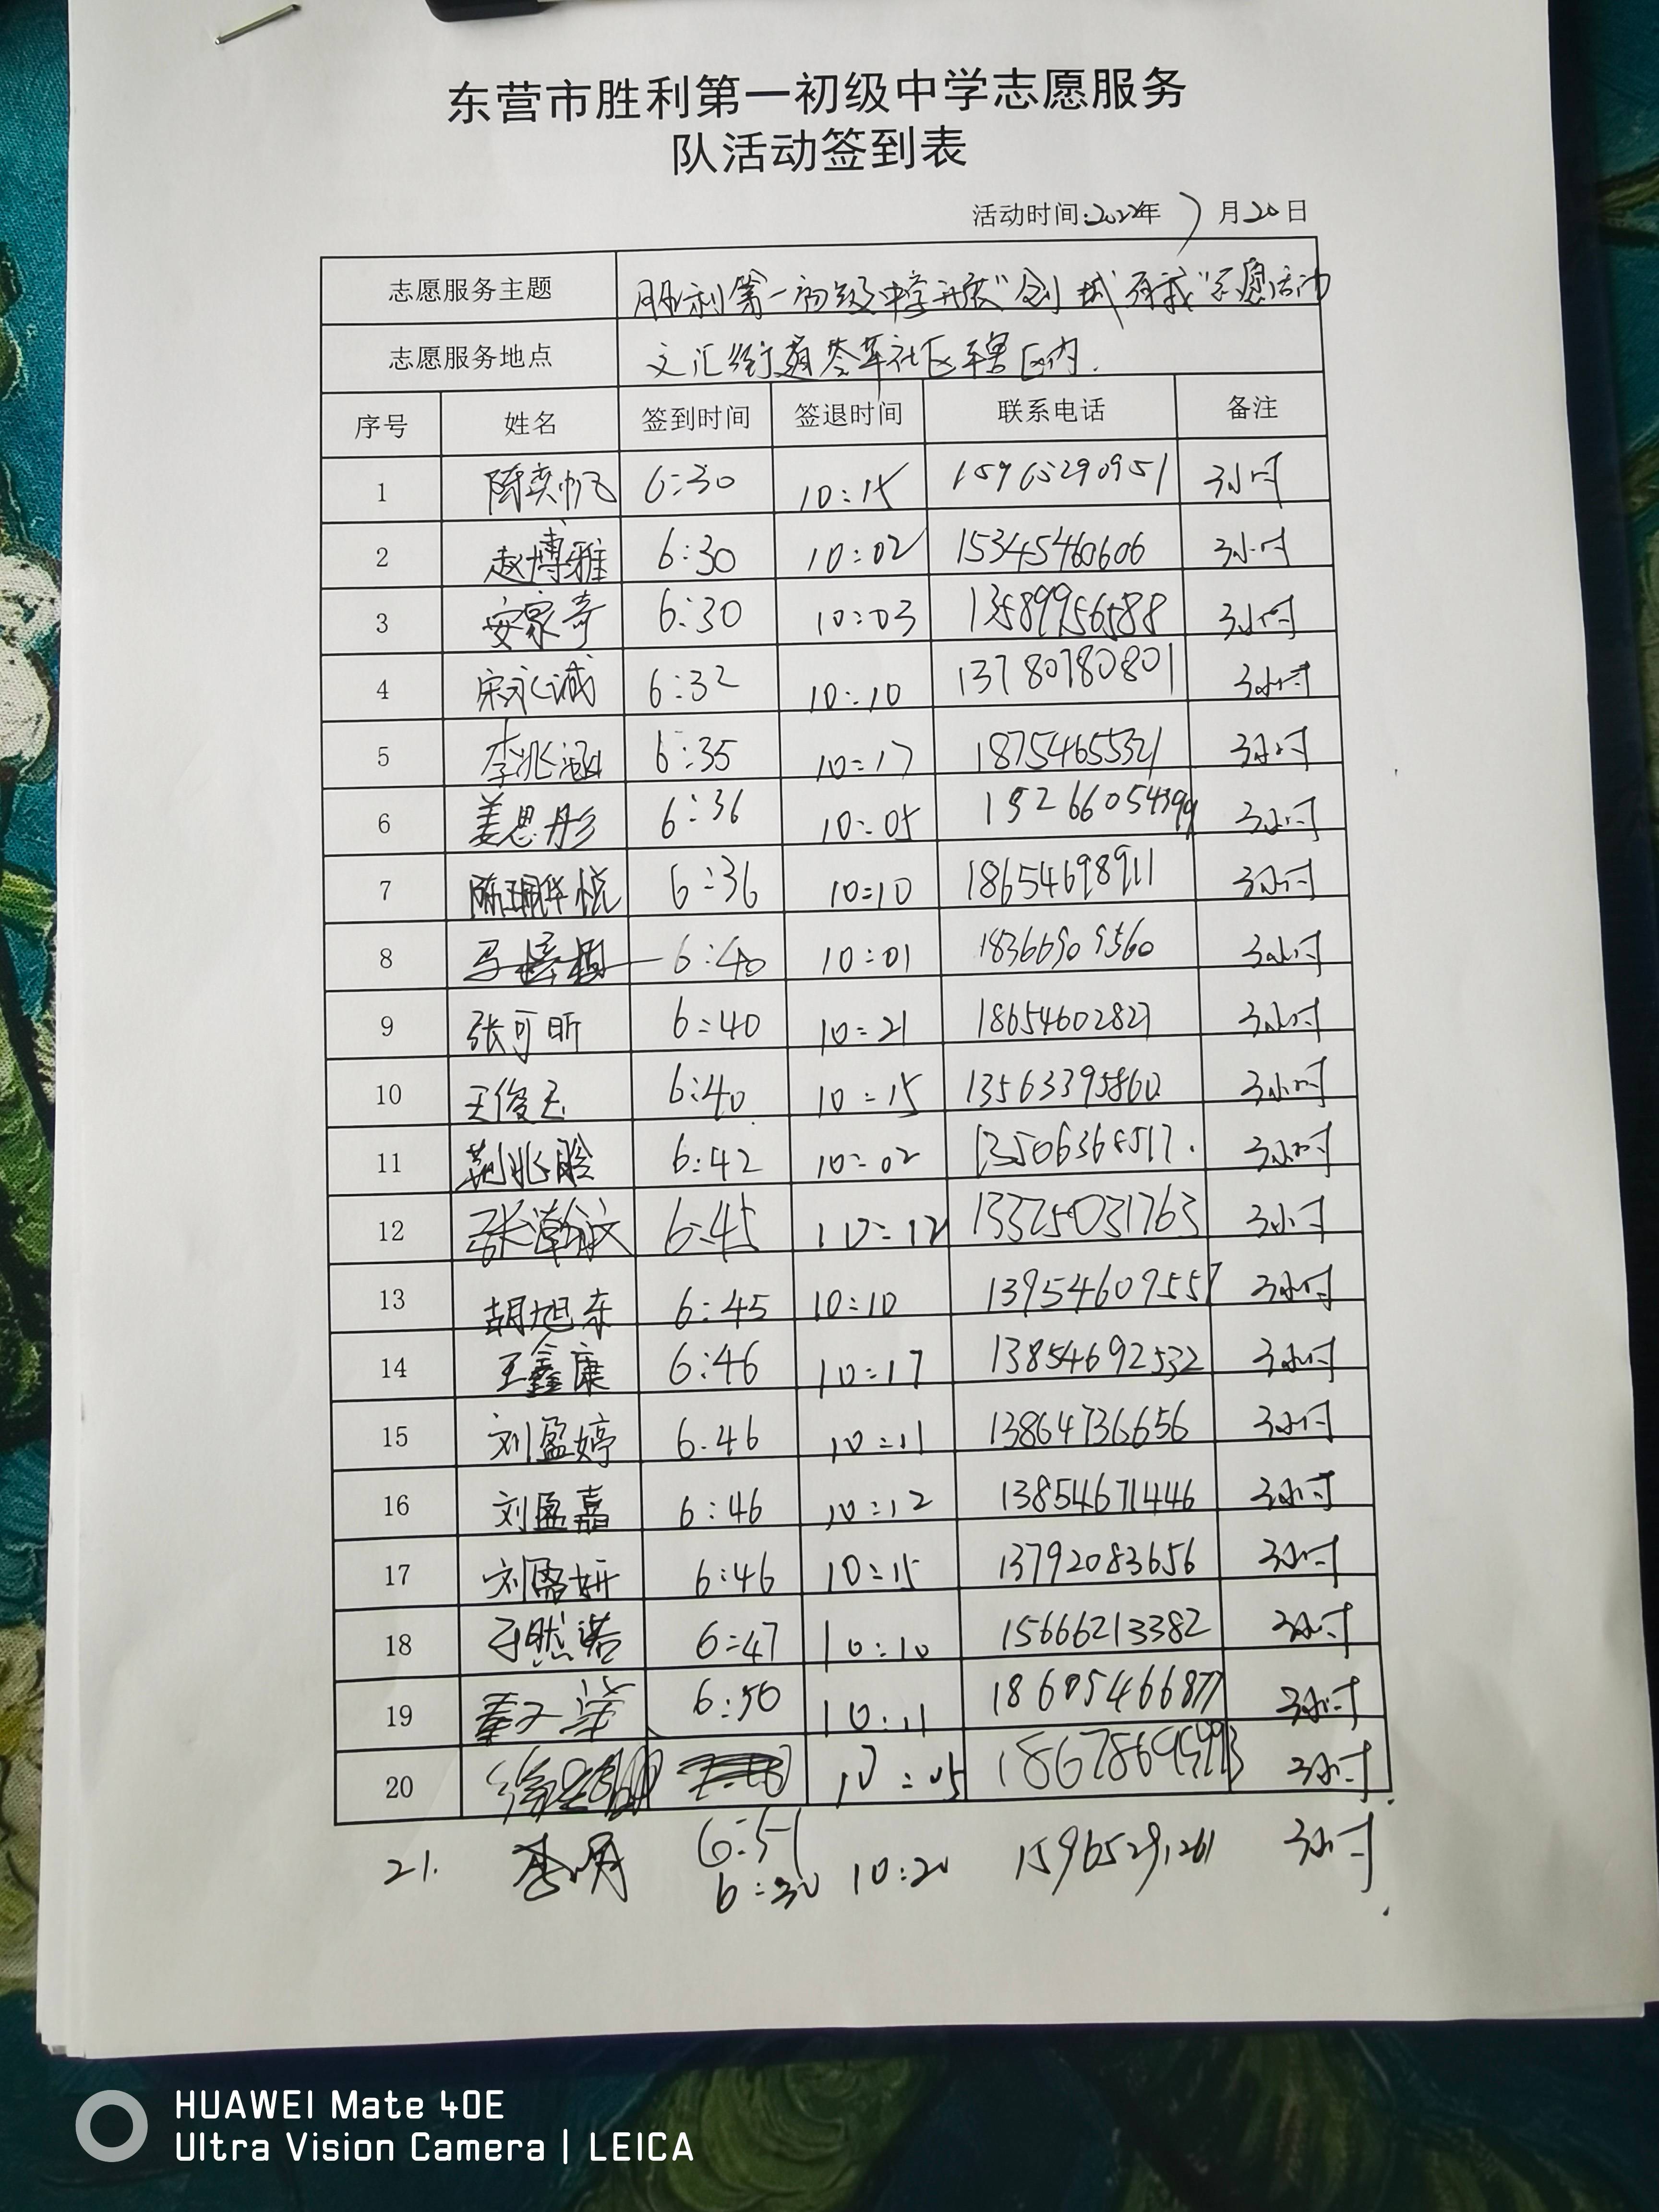 东营市胜利第一初级中学志愿服务
队活动签到表
活动时间:2022年7月20日
志愿服务主题 胜利第一初级中学开展“创城有我”志愿活动
志愿服务地点 文汇街道 社区辖区内.
序号 姓名 签到时间 签退时间 联系电话 备注
1 陈奕帆 6:30 10:15 15965290951 3小时
2 赵博雅 6:30 10:02 15345460606 3小时
3 安家奇 6:30 10:03 13589956588 3小时
4 宋永诚 6:32 10:10 13780780801 3小时
5 李兆涵 6:35 10:17 18754655321 3小时
6 姜思彤 6:36 10:05 3小时
7 6:36 10:10 18654698911 3小时
8 6:40 10:01 18366909560 3小时
9 张可昕 6:40 10:21 18654602827 3小时
10 王俊 6:40 10:15 13563395860 3小时
11 6:42 10:02 13506368517. 3小时
12 张瀚文 6:45 10:12 3小时
13 胡旭东 6:45 10:10 13954609557 3小时
14 王鑫康 6:46 10:17 13854692532 3小时
15 刘盈婷 6:46 10:11 13864736656 3小时
16 刘盈嘉 6:46 10:12 13854671446 3小时
17 刘盈妍 6:46 10:15 13792083656 3小时
18 于然诺 6:47 10:10 15666213382 3小时
19 6:50 10:11 3小时
20 10:05 3小时
6:51
21. 6:30 10:20 15965291261 3小时
HUAWEI Mate 40E
Ultra Vision Camera | LEICA